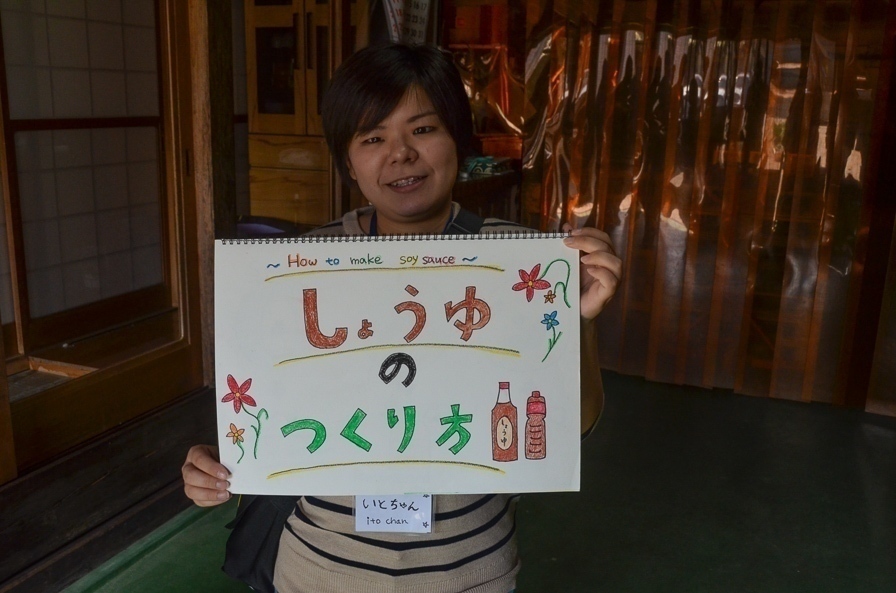 ~ How to make soy sauce ~
しょうゆ
の
つくり方
しょうゆ
いとちゃん
ito chan